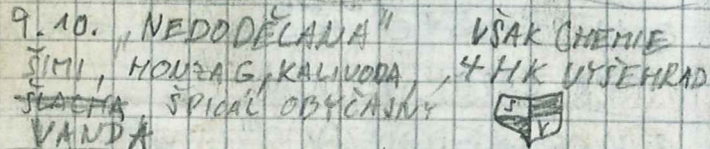 9.10. „NEDODĚLANÁ" VŠAK CHEMIE
ŠIMI, HONZA G, KALIVODA, 4 HK VYŠEHRAD
ŠLACHA ŠPICAL OBYČAJNÝ
VANDA
S
V